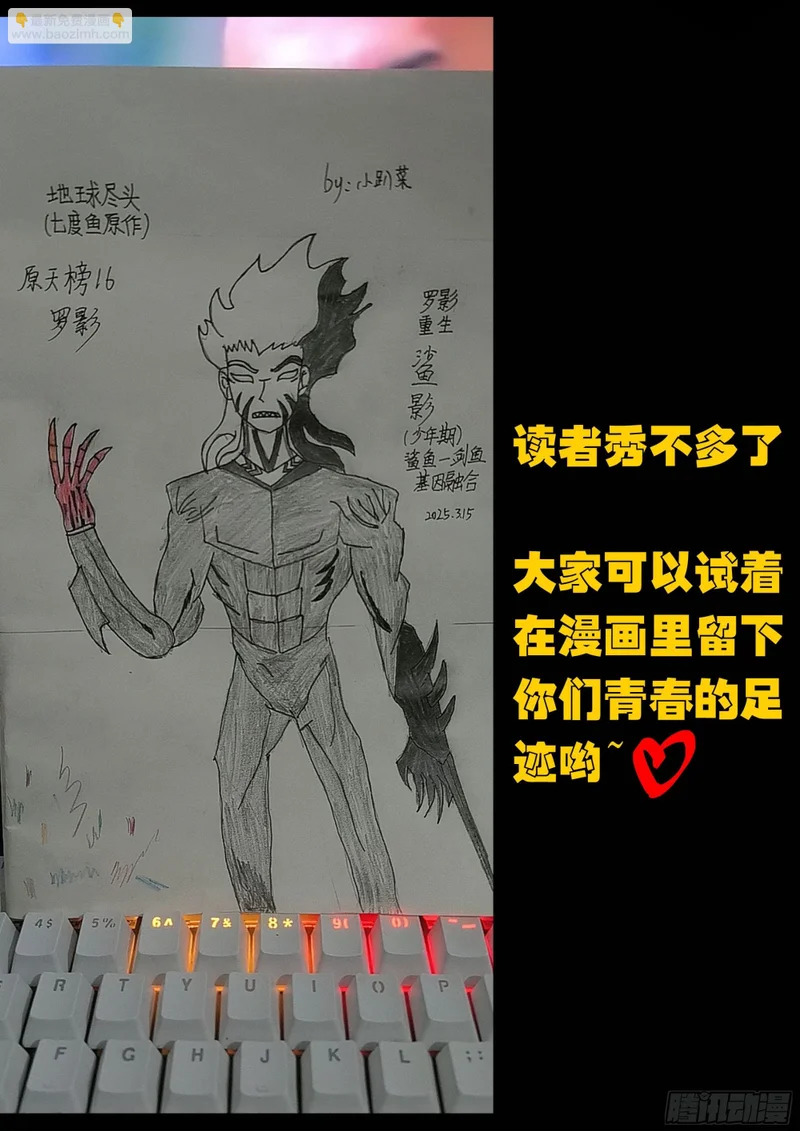 👇最新免费漫画👇
www.baozimh.com
地球尽头
(七度鱼原作)
by:小趴菜
原天榜16
罗影
罗影
重生
鲨
影
(少年期)
鲨鱼一剑鱼
基因融合
2025.3.15
读者秀不多了
大家可以试着
在漫画里留下
你们青春的足
迹哟~
4$ 5% 6^ 7& 8* 9( 0) -_
R T Y U I O P
F G H J K L ;:
腾讯动漫